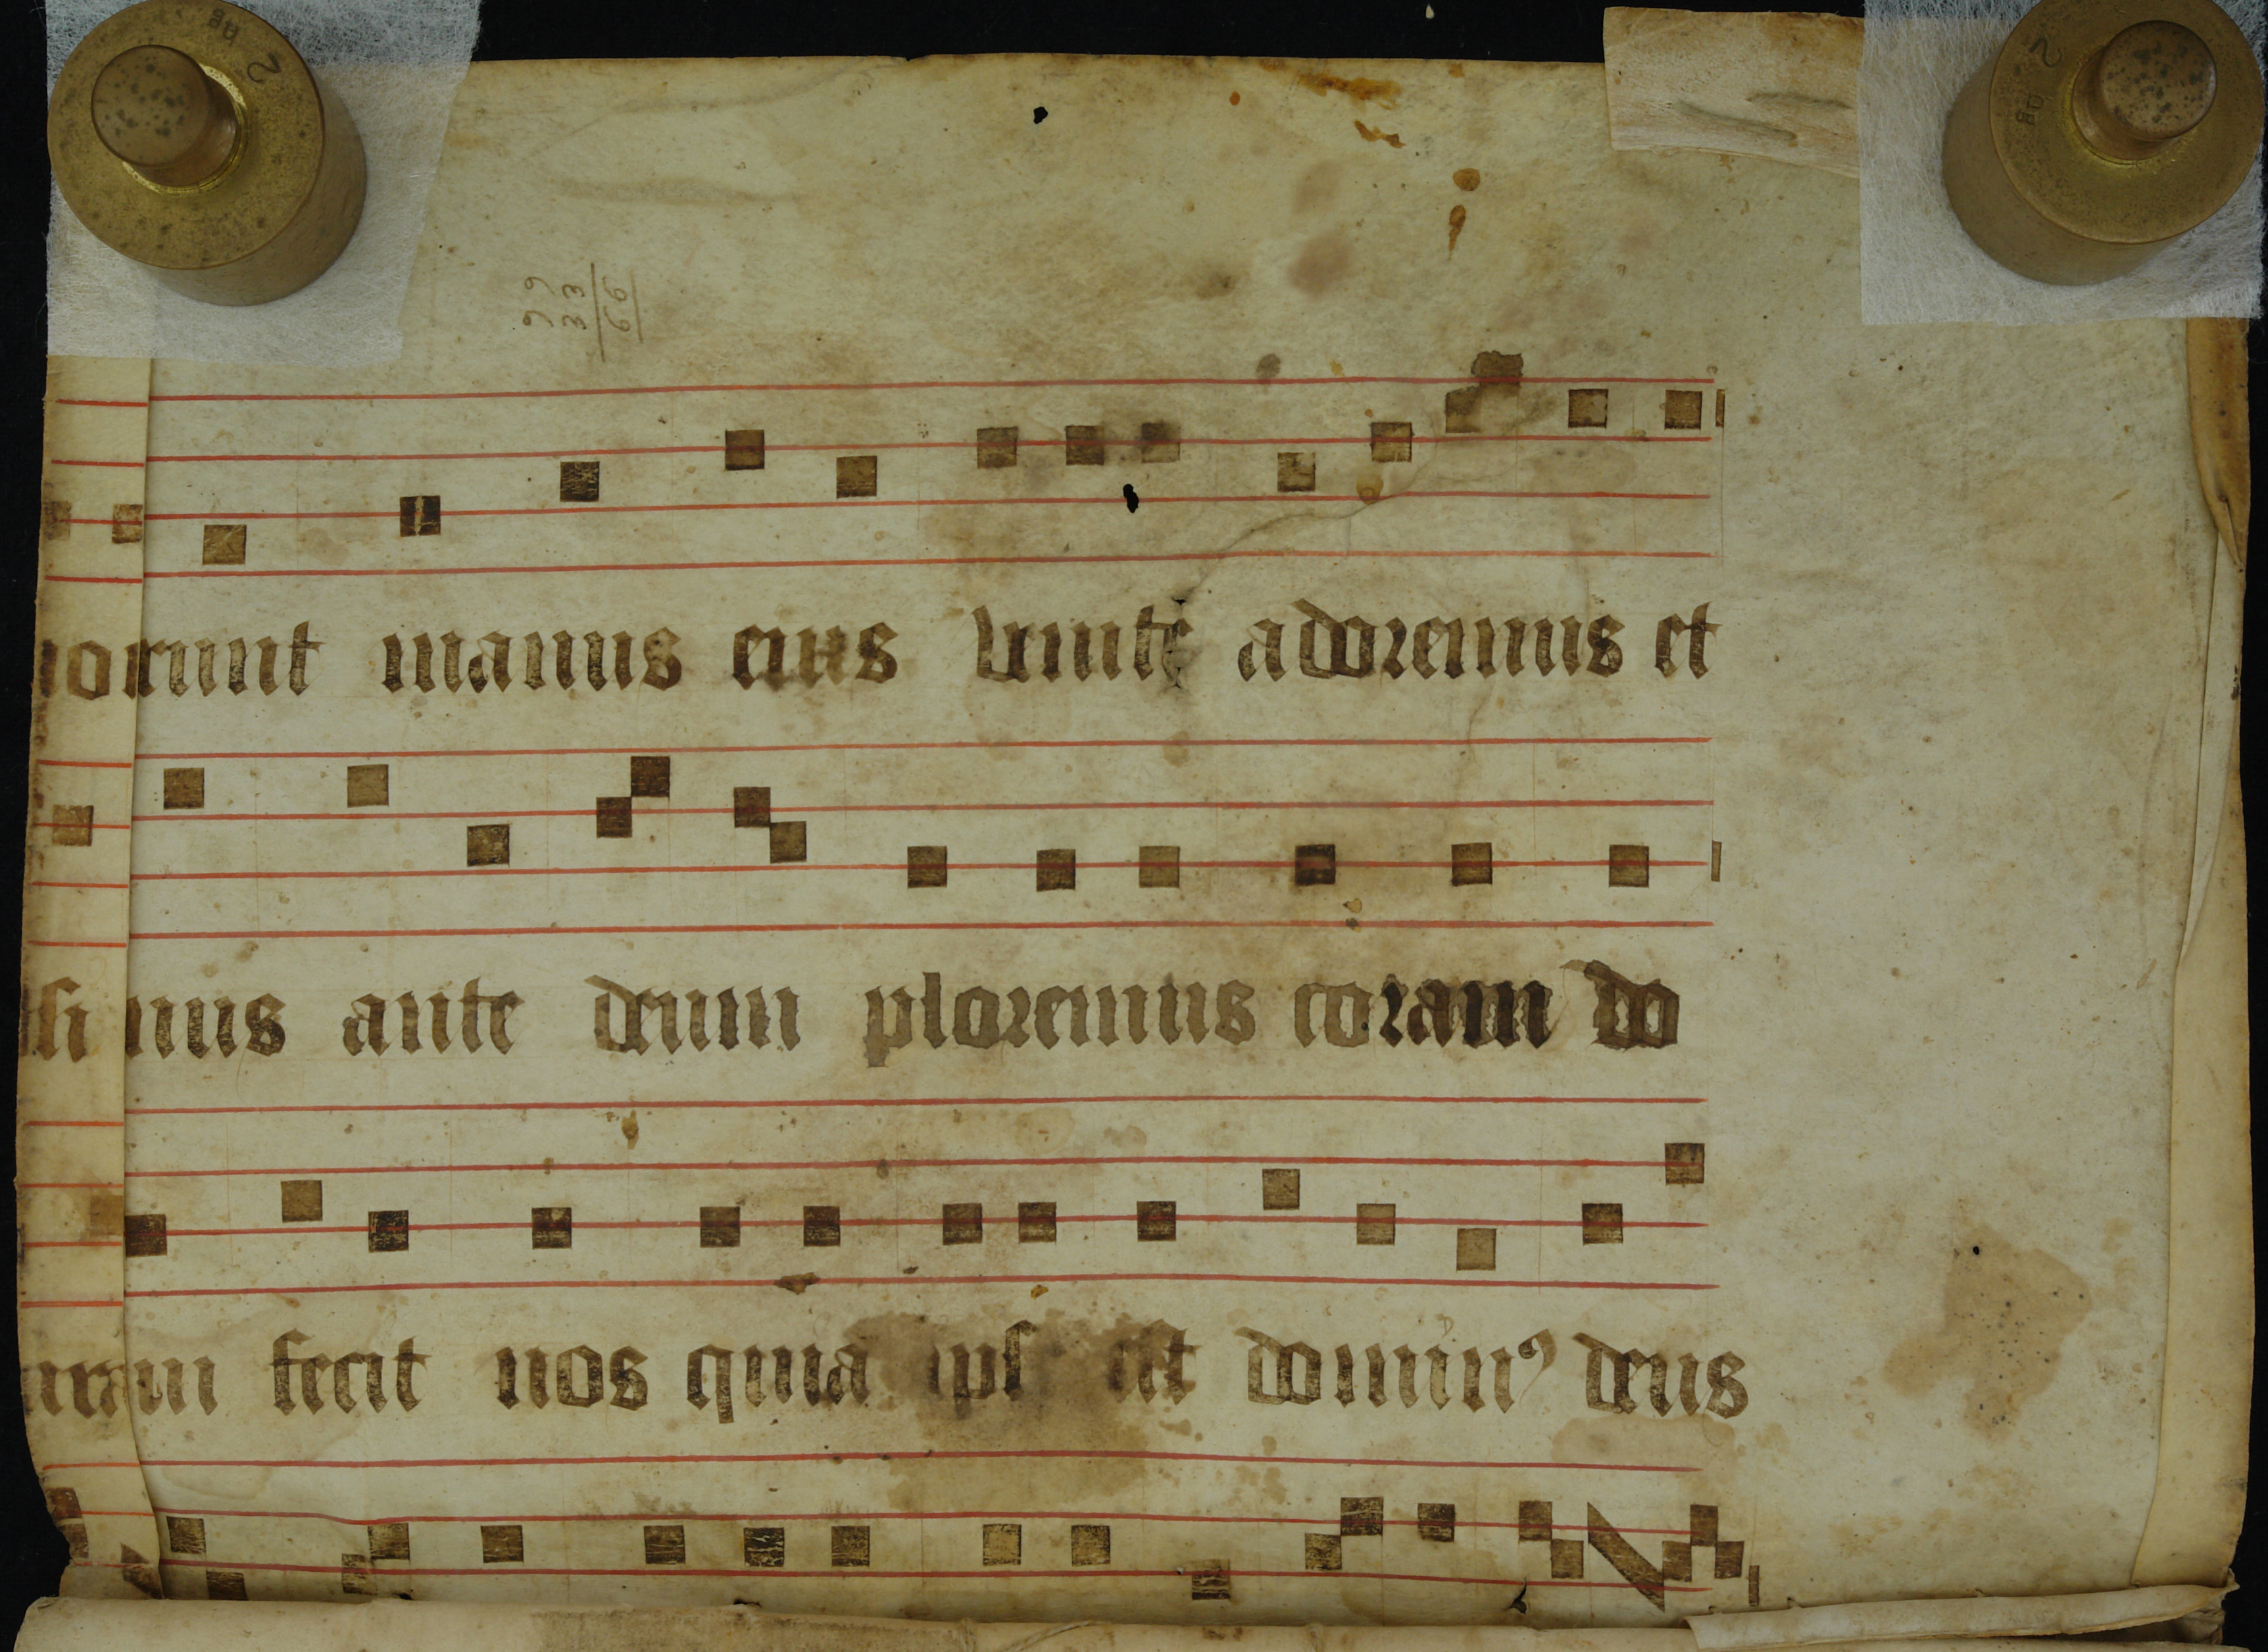 99
33
66
orunt manus eius venite adoremus et
mus ante deum ploremus coram do
fecit nos quia ips est dominꝰ deus